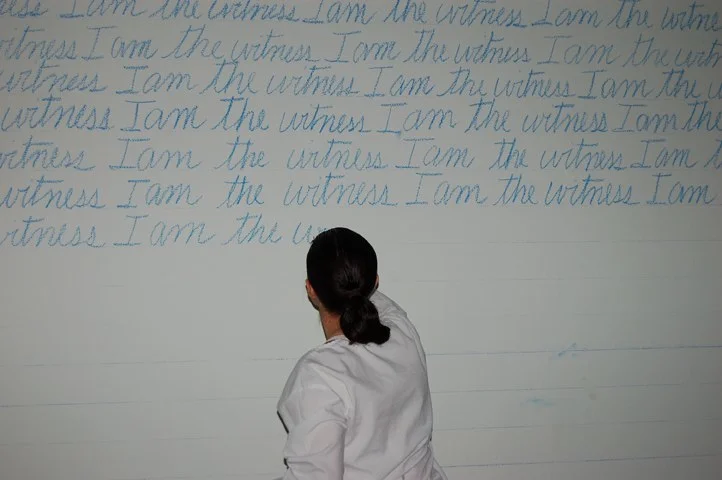 ness I am the witness I am the witness I am the witne
witness I am the witness I am the witness I am the witn
witness I am the witness I am the witness I am the w
witness I am the witness I am the witness I am the
witness I am the witness I am the witness I am t
witness I am the witness I am the witness I am
witness I am the w